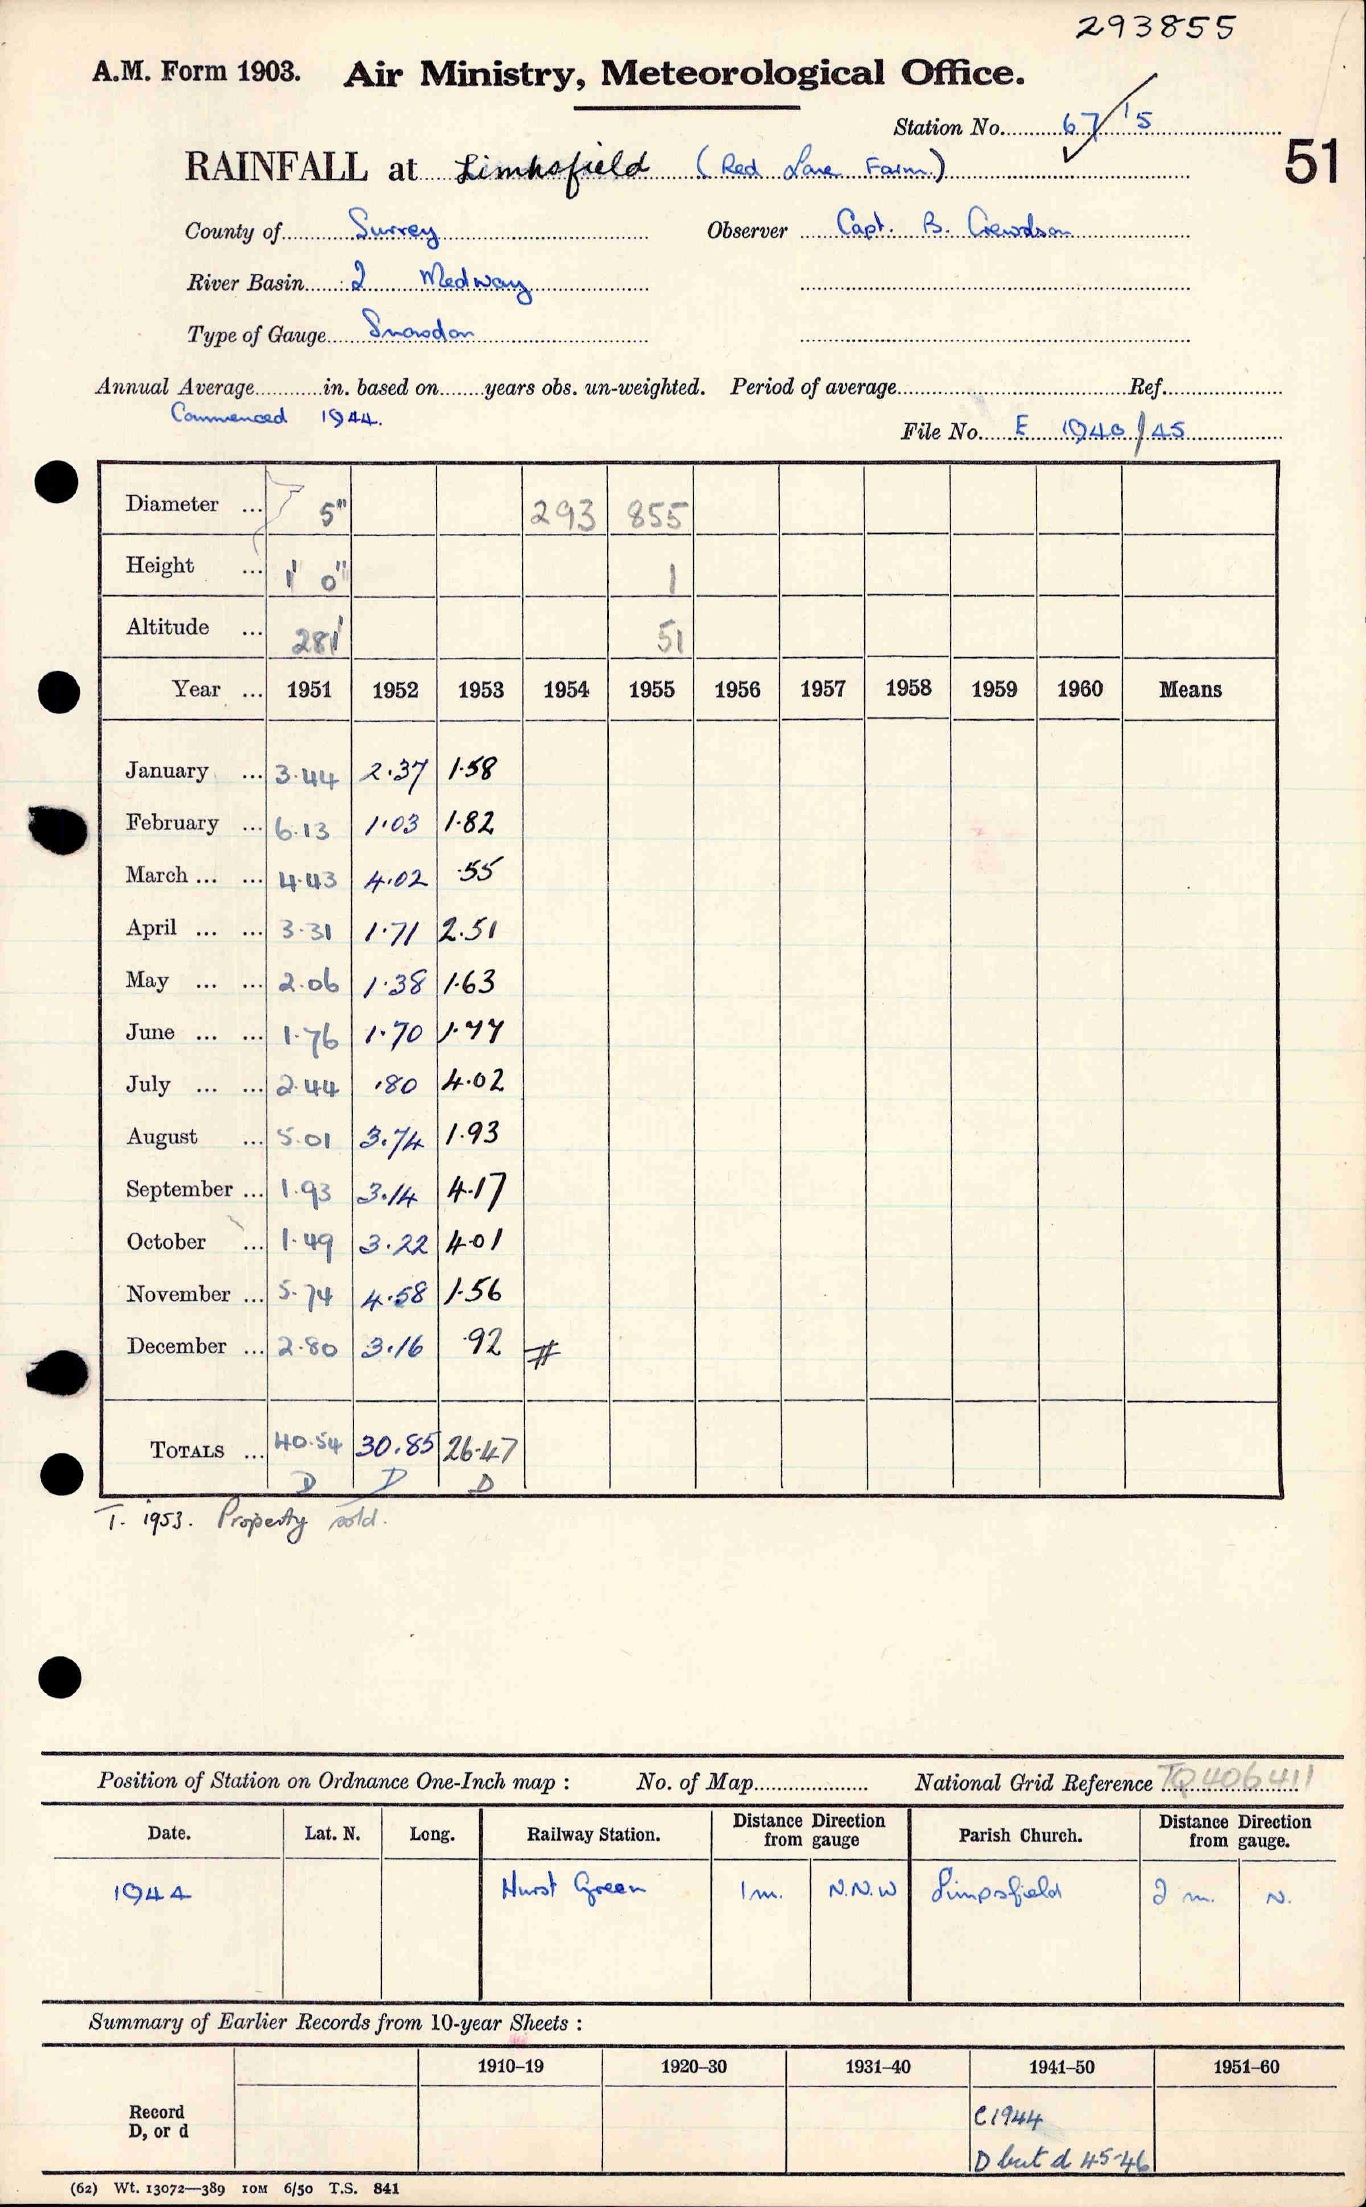 293855
A.M. Form 1903. Air Ministry, Meteorological Office.
Station No. 67/15
51
RAINFALL at Limpsfield (Red Lane Farm)
County of Surrey Observer Capt. B. Crewdson
River Basin 2 Medway
Type of Gauge Snowdon
Annual Average in. based on years obs. un-weighted. Period of average Ref.
Commenced 1944.
File No. E 1940/45
Diameter ... 5" 293 855
Height ... 1' 0" 1
Altitude ... 281' 51
Year ... 1951 1952 1953 1954 1955 1956 1957 1958 1959 1960 Means
January ... 3.44 2.37 1.58
February ... 6.13 1.03 1.82
March ... ... 4.43 4.02 .55
April ... ... 3.31 1.71 2.51
May ... ... 2.06 1.38 1.63
June ... ... 1.76 1.70 1.77
July ... ... 2.44 .80 4.02
August ... 5.01 3.74 1.93
September ... 1.93 3.14 4.17
October ... 1.49 3.22 4.01
November ... 5.74 4.58 1.56
December ... 2.80 3.16 .92 #
TOTALS ... 40.54 30.85 26.47
D D D
T. 1953. Property sold.
Position of Station on Ordnance One-Inch map : No. of Map National Grid Reference TQ406411
Date. Lat. N. Long. Railway Station. Distance Direction from gauge Parish Church. Distance Direction from gauge.
1944 Hurst Green 1m. N.N.W Limpsfield 2 m. N.
Summary of Earlier Records from 10-year Sheets :
1910–19 1920–30 1931–40 1941–50 1951–60
Record D, or d C1944
D but d 45-46
(62) Wt. 13072—389 10M 6/50 T.S. 841